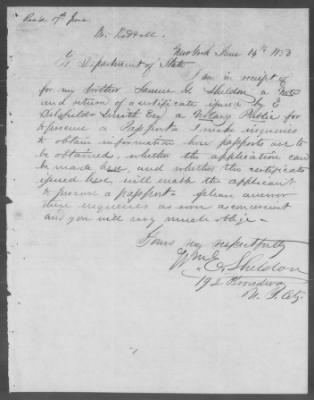 Recd 17th June
Mr. Reddall
New York June 14th 1853
Department of State
I am in receipt of
for my brother Samuel G. Sheldon a Note
and return of a certificate issued by E
Delafield Smith Esq a Notary Public for
to procure a Passport. I make inquiries
to obtain information how passports are to
be obtained, whether the application can
be made here, and whether the certificate
issued here, will enable the applicant
to procure a passport. please answer
these enquiries as soon as convenient
and you will very much oblige -
Yours very respectfully
Wm E Sheldon
192 Broadway
N. Y. City.